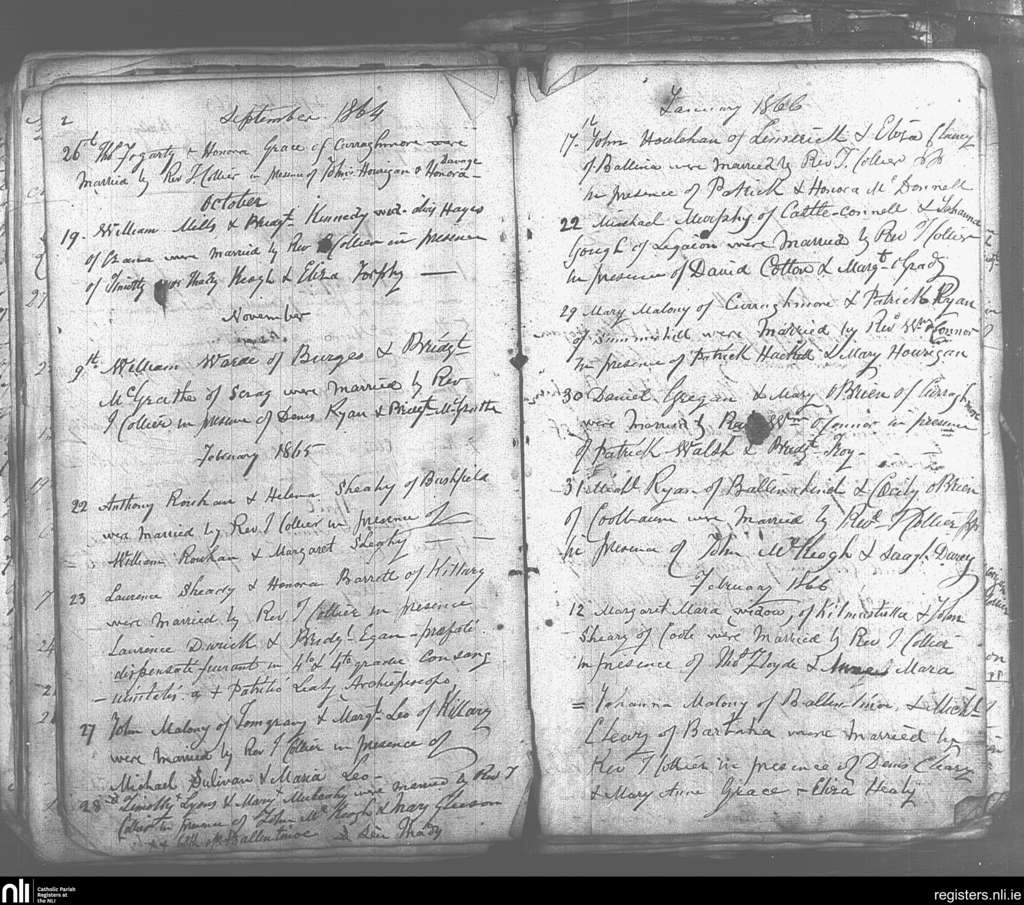 2
September 1864
26th Thos Fogarty & Honora Grace of Curraghmore were
Married by Rev T. Collier in presence of John Hourigan & Honora
Savage
October
19. William Mills & Bridgt. Kennedy wid. Hayes
of were Married by Rev Collier in presence
of Timothy Thady Keogh & Eliza
November
9th William Warde of Burges & Bridgt
McGrathe of Scrag were Married by Rev
T Collier in presence of Denis Ryan & Bridgt McGrathe
February 1865
22 Anthony Rouhan & Helena Sheahy of Bushfield
were married by Rev. T Collier in presence of
William Rouhan & Margaret Sheahy
23 Laurence Sheady & Honora Barrett of Killary
were married by Rev T Collier in presence
Laurence Darick & Bridgt Egan
dispensate fuerant in 4to & 4to gradu Consang
a Patritio Leahy Archiepiscopo
27 John Malony of Tomgrany & Margt Leo of Killary
were Married by Rev T Collier in presence of
Michael Sulivan & Maria Leo
28 Timothy Lyons & Mary were married by Rev T
Collier in presence of John McKeogh & Mary Gleeson
of Ballintinoe
January 1866
17.th John Houlehan of Limerick & Eliza Cleary
of Ballina were Married by Rev. T. Collier P P
in presence of Patrick & Honora McDonnell
22 Michael Murphy of Cattle-connell & Johanna
Gough of were Married by Rev T Collier
in presence of David Cotton & Margt Grady
29 Mary Malony of Curraghmore & Patrick Ryan
of Summerhill were Married by Revd Wm OConnor
in presence of Patrick Hackett & Mary Hourigan
30 Daniel Gregan & Mary OBrien of Curraghmore
were Married by Rev Wm OConnor in presence
of Patrick Walsh & Bridgt Hoy
31 Michl Ryan of & Cecily OBrien
of Coolbawn were Married by Revd T Collier PP
in presence of John McKeogh & Darcy
February 1866
12 Margaret Mara widow, of & John
Sheary of Coole were Married by Rev T Collier
in presence of Thos Lloyde & Mara
= Johanna Malony of Ballintinoe, & Michl
Cleary of were Married by
Rev T Collier in presence of Denis Cleary
& Mary Anne Grace & Eliza Healy
nli
Catholic Parish
Registers at
the NLI
registers.nli.ie